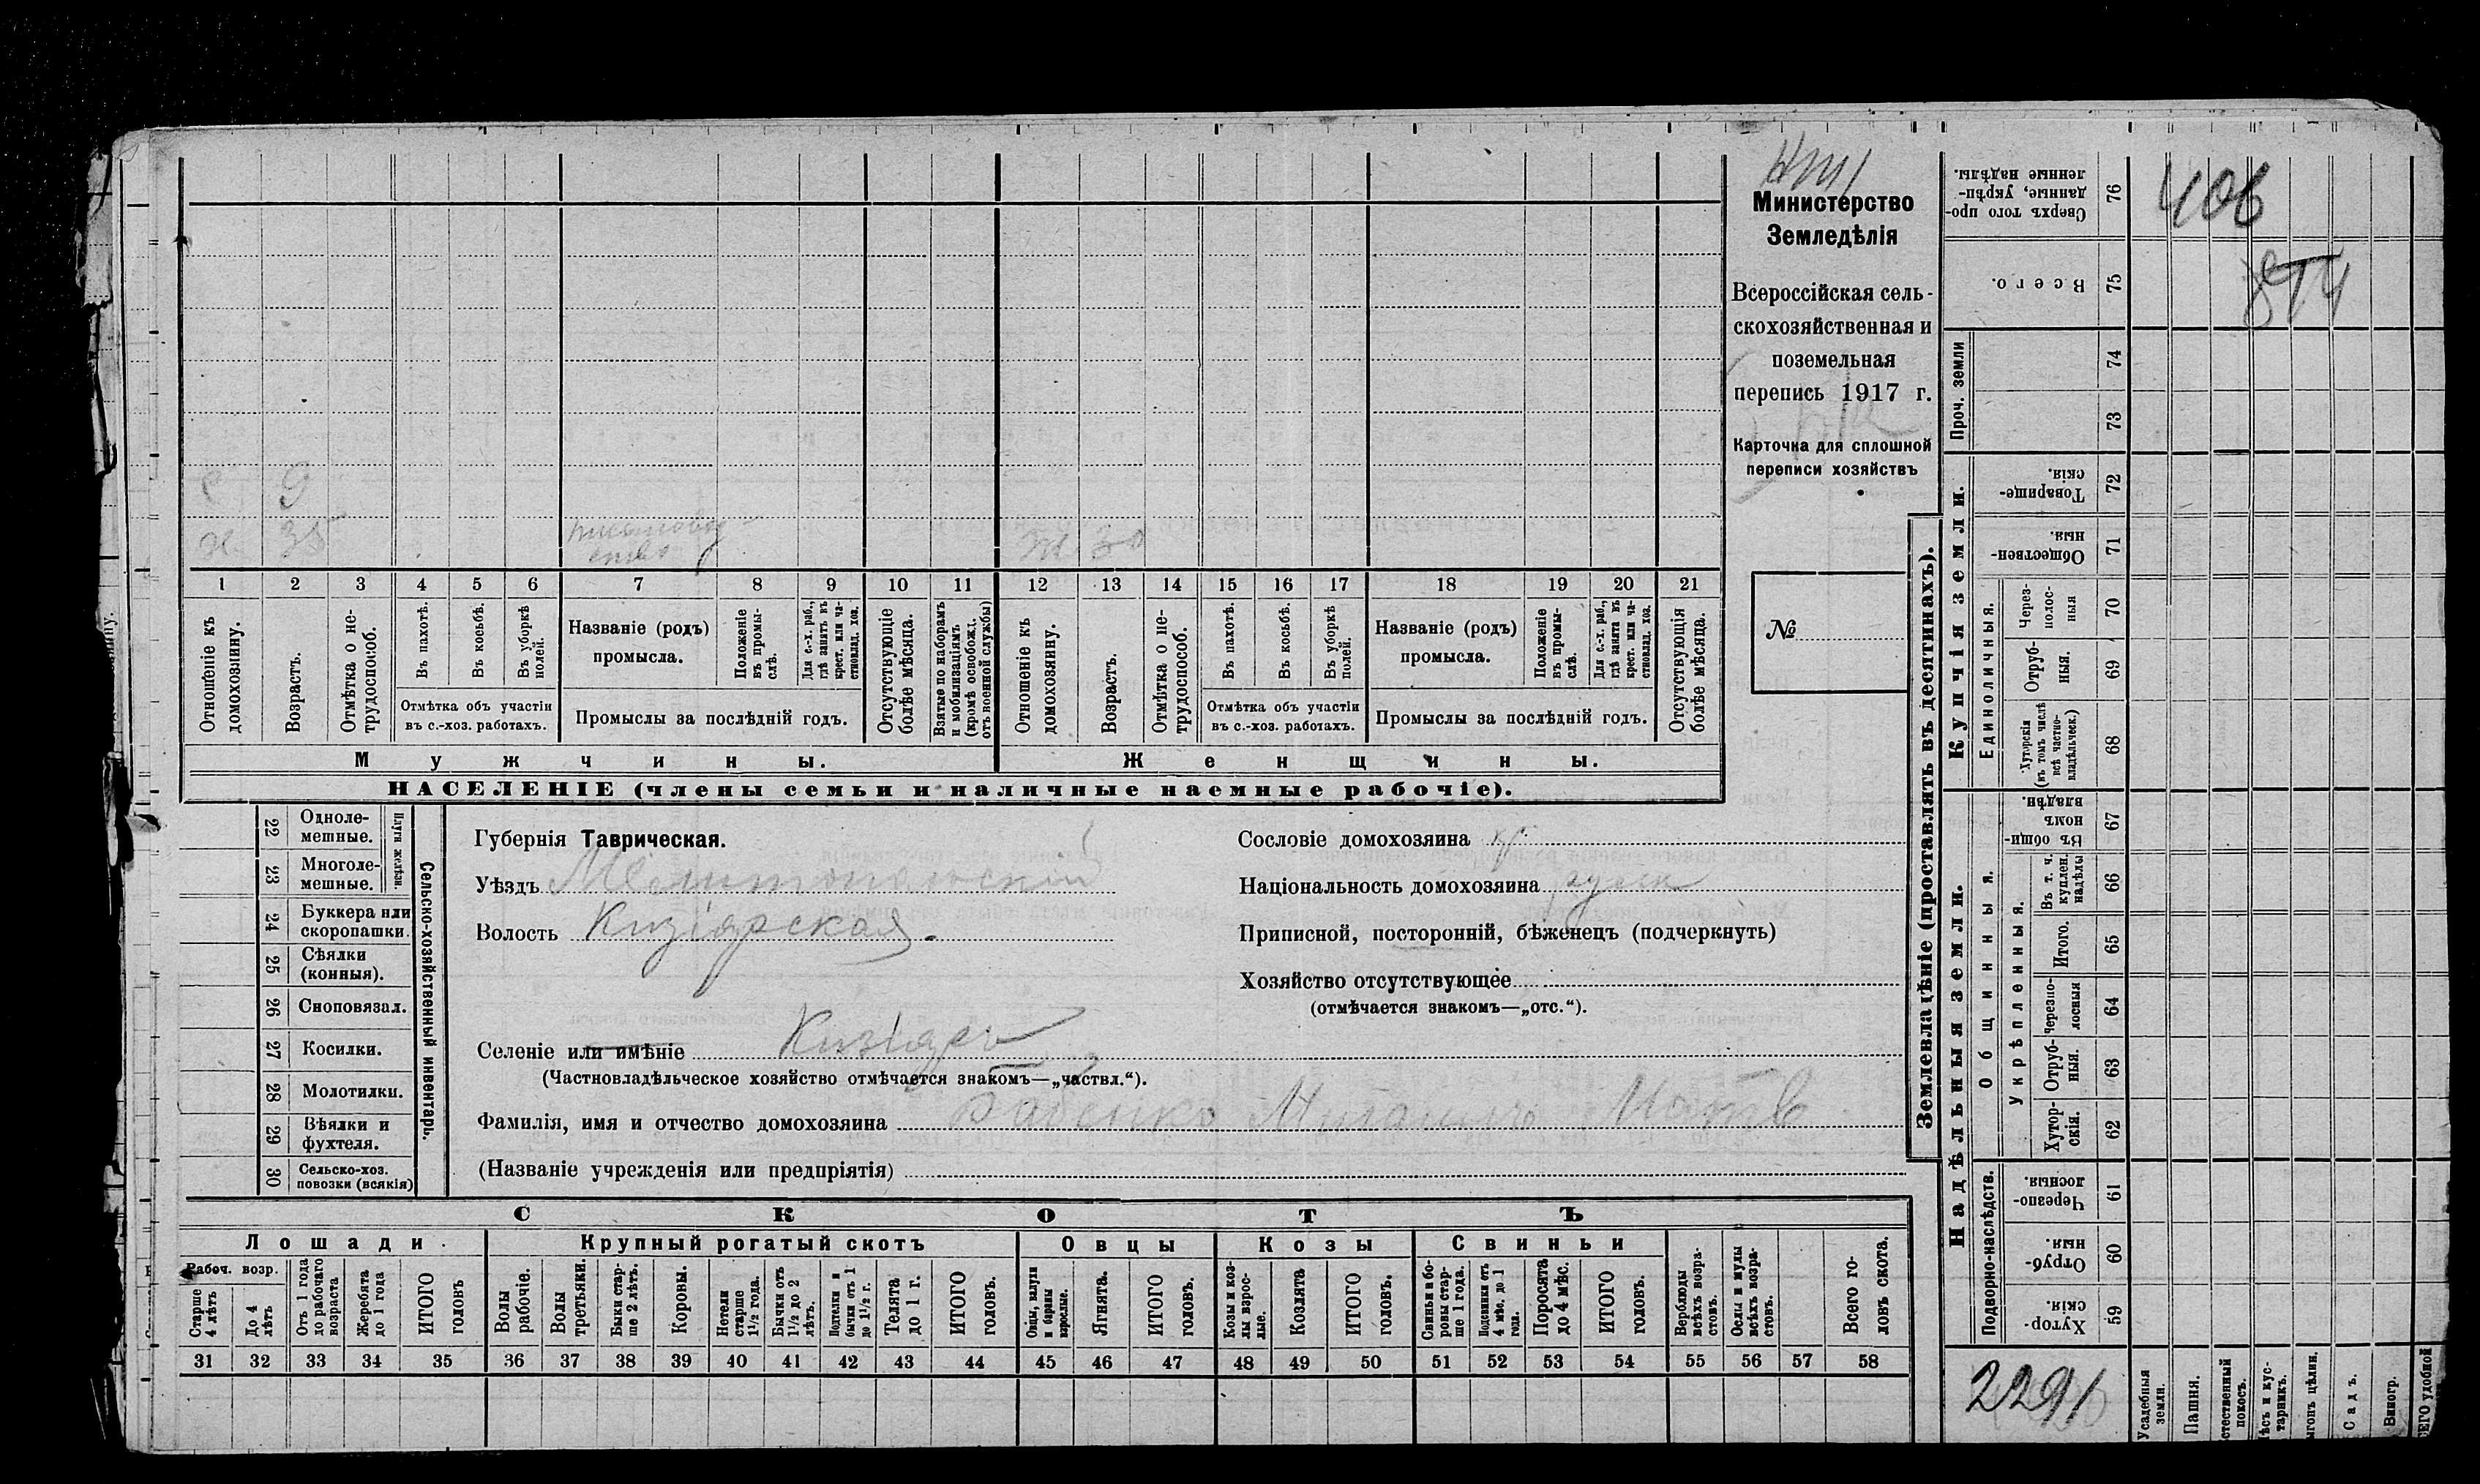 406
Министерство
Земледѣлія
Всероссійская сель-
скохозяйственная и
поземельная
перепись 1917 г.
Карточка для сплошной
переписи хозяйствъ
№
с 9
х. 35
ж. 30
1 2 3 4 5 6 7 8 9 10 11 12 13 14 15 16 17 18 19 20 21
Отношеніе къ домохозяину.
Возрастъ.
Отмѣтка о не-трудоспособ.
Въ пахотѣ.
Въ косьбѣ.
Въ уборкѣ полей.
Отмѣтка объ участіи
въ с.-хоз. работахъ.
Названіе (родъ)
промысла.
Положеніе въ промы-слѣ.
Для с.-х. раб., гдѣ занятъ въ крест. или ча-стновлад. хоз.
Промыслы за послѣдній годъ.
Отсутствующіе болѣе мѣсяца.
Взятые по наборамъ и мобилизаціямъ (кромѣ освобожд. отъ военной службы)
Отношеніе къ домохозяину.
Возрастъ.
Отмѣтка о не-трудоспособ.
Въ пахотѣ.
Въ косьбѣ.
Въ уборкѣ полей.
Отмѣтка объ участіи
въ с.-хоз. работахъ.
Названіе (родъ)
промысла.
Положеніе въ промы-слѣ.
Для с.-х. раб., гдѣ занята въ крест. или ча-стновлад. хоз.
Промыслы за послѣдній годъ.
Отсутствующія болѣе мѣсяца.
Мужчины.
Женщины.
НАСЕЛЕНІЕ (члены семьи и наличные наемные рабочіе).
22 Одноле-мешные.
23 Многоле-мешные.
Плуги желѣзн.
24 Буккера или скоропашки.
25 Сѣялки (конныя).
26 Сноповязал.
27 Косилки.
28 Молотилки.
29 Вѣялки и фухтеля.
30 Сельско-хоз. повозки (всякія)
Сельско-хозяйственный инвентарь.
Губернія Таврическая.
Уѣздъ Мелитопольскій
Волость Кизіярская.
Селеніе или имѣніе Кизіяръ
(Частновладѣльческое хозяйство отмѣчается знакомъ—„частвл.“).
Фамилія, имя и отчество домохозяина
(Названіе учрежденія или предпріятія)
Сословіе домохозяина кр.
Національность домохозяина русск
Приписной, посторонній, бѣженецъ (подчеркнуть)
Хозяйство отсутствующее
(отмѣчается знакомъ—„отс.“).
СКОТЪ
Лошади.
Крупный рогатый скотъ
Овцы
Козы
Свиньи
Рабоч. возр.
Старше 4 лѣтъ
До 4 лѣтъ
Отъ 1 года до рабочаго возраста
Жеребята до 1 года
ИТОГО головъ
Волы рабочіе.
Волы третьяки.
Быки стар-ше 2 лѣтъ.
Коровы.
Нетели старше 1½ года.
Бычки отъ 1½ до 2 лѣтъ.
Подтелки и бычки отъ 1 до 1½ г.
Телята до 1 г.
ИТОГО головъ.
Овцы, валухи и бараны взрослые.
Ягнята.
ИТОГО головъ.
Козы и коз-лы взрос-лые.
Козлята
ИТОГО головъ.
Свиньи и бо-ровы стар-ше 1 года.
Подсвинки отъ 4 мѣс. до 1 года.
Поросята до 4 мѣс.
ИТОГО головъ.
Верблюды всѣхъ возра-стовъ.
Ослы и мулы всѣхъ возра-стовъ.
Всего го-ловъ скота.
31 32 33 34 35 36 37 38 39 40 41 42 43 44 45 46 47 48 49 50 51 52 53 54 55 56 57 58
Землевладѣніе (проставлять въ десятинахъ).
Купчія земли.
Надѣльныя земли.
Сверхъ того про-данные, укрѣп-ленные надѣлы. 76
Всего. 75
Проч. земли
74
73
Товарище-скія 72
Обществен-ныя 71
Единоличныя.
Черезполос-ныя 70
Отруб-ныя. 69
Хуторскія (въ томъ числѣ всѣ частно-владѣльческ.) 68
Общинныя.
Въ общи-номъ владѣн. 67
Укрѣпленныя.
Въ т. ч. куплен. надѣлы 66
Итого. 65
Черезпо-лосныя 64
Отруб-ныя. 63
Хутор-скія. 62
Подворно-наслѣдств.
Черезпо-лосныя. 61
Отруб-ныя. 60
Хутор-скія. 59
2291
Усадебныя земли.
Пашня.
Садъ.
Виногр.